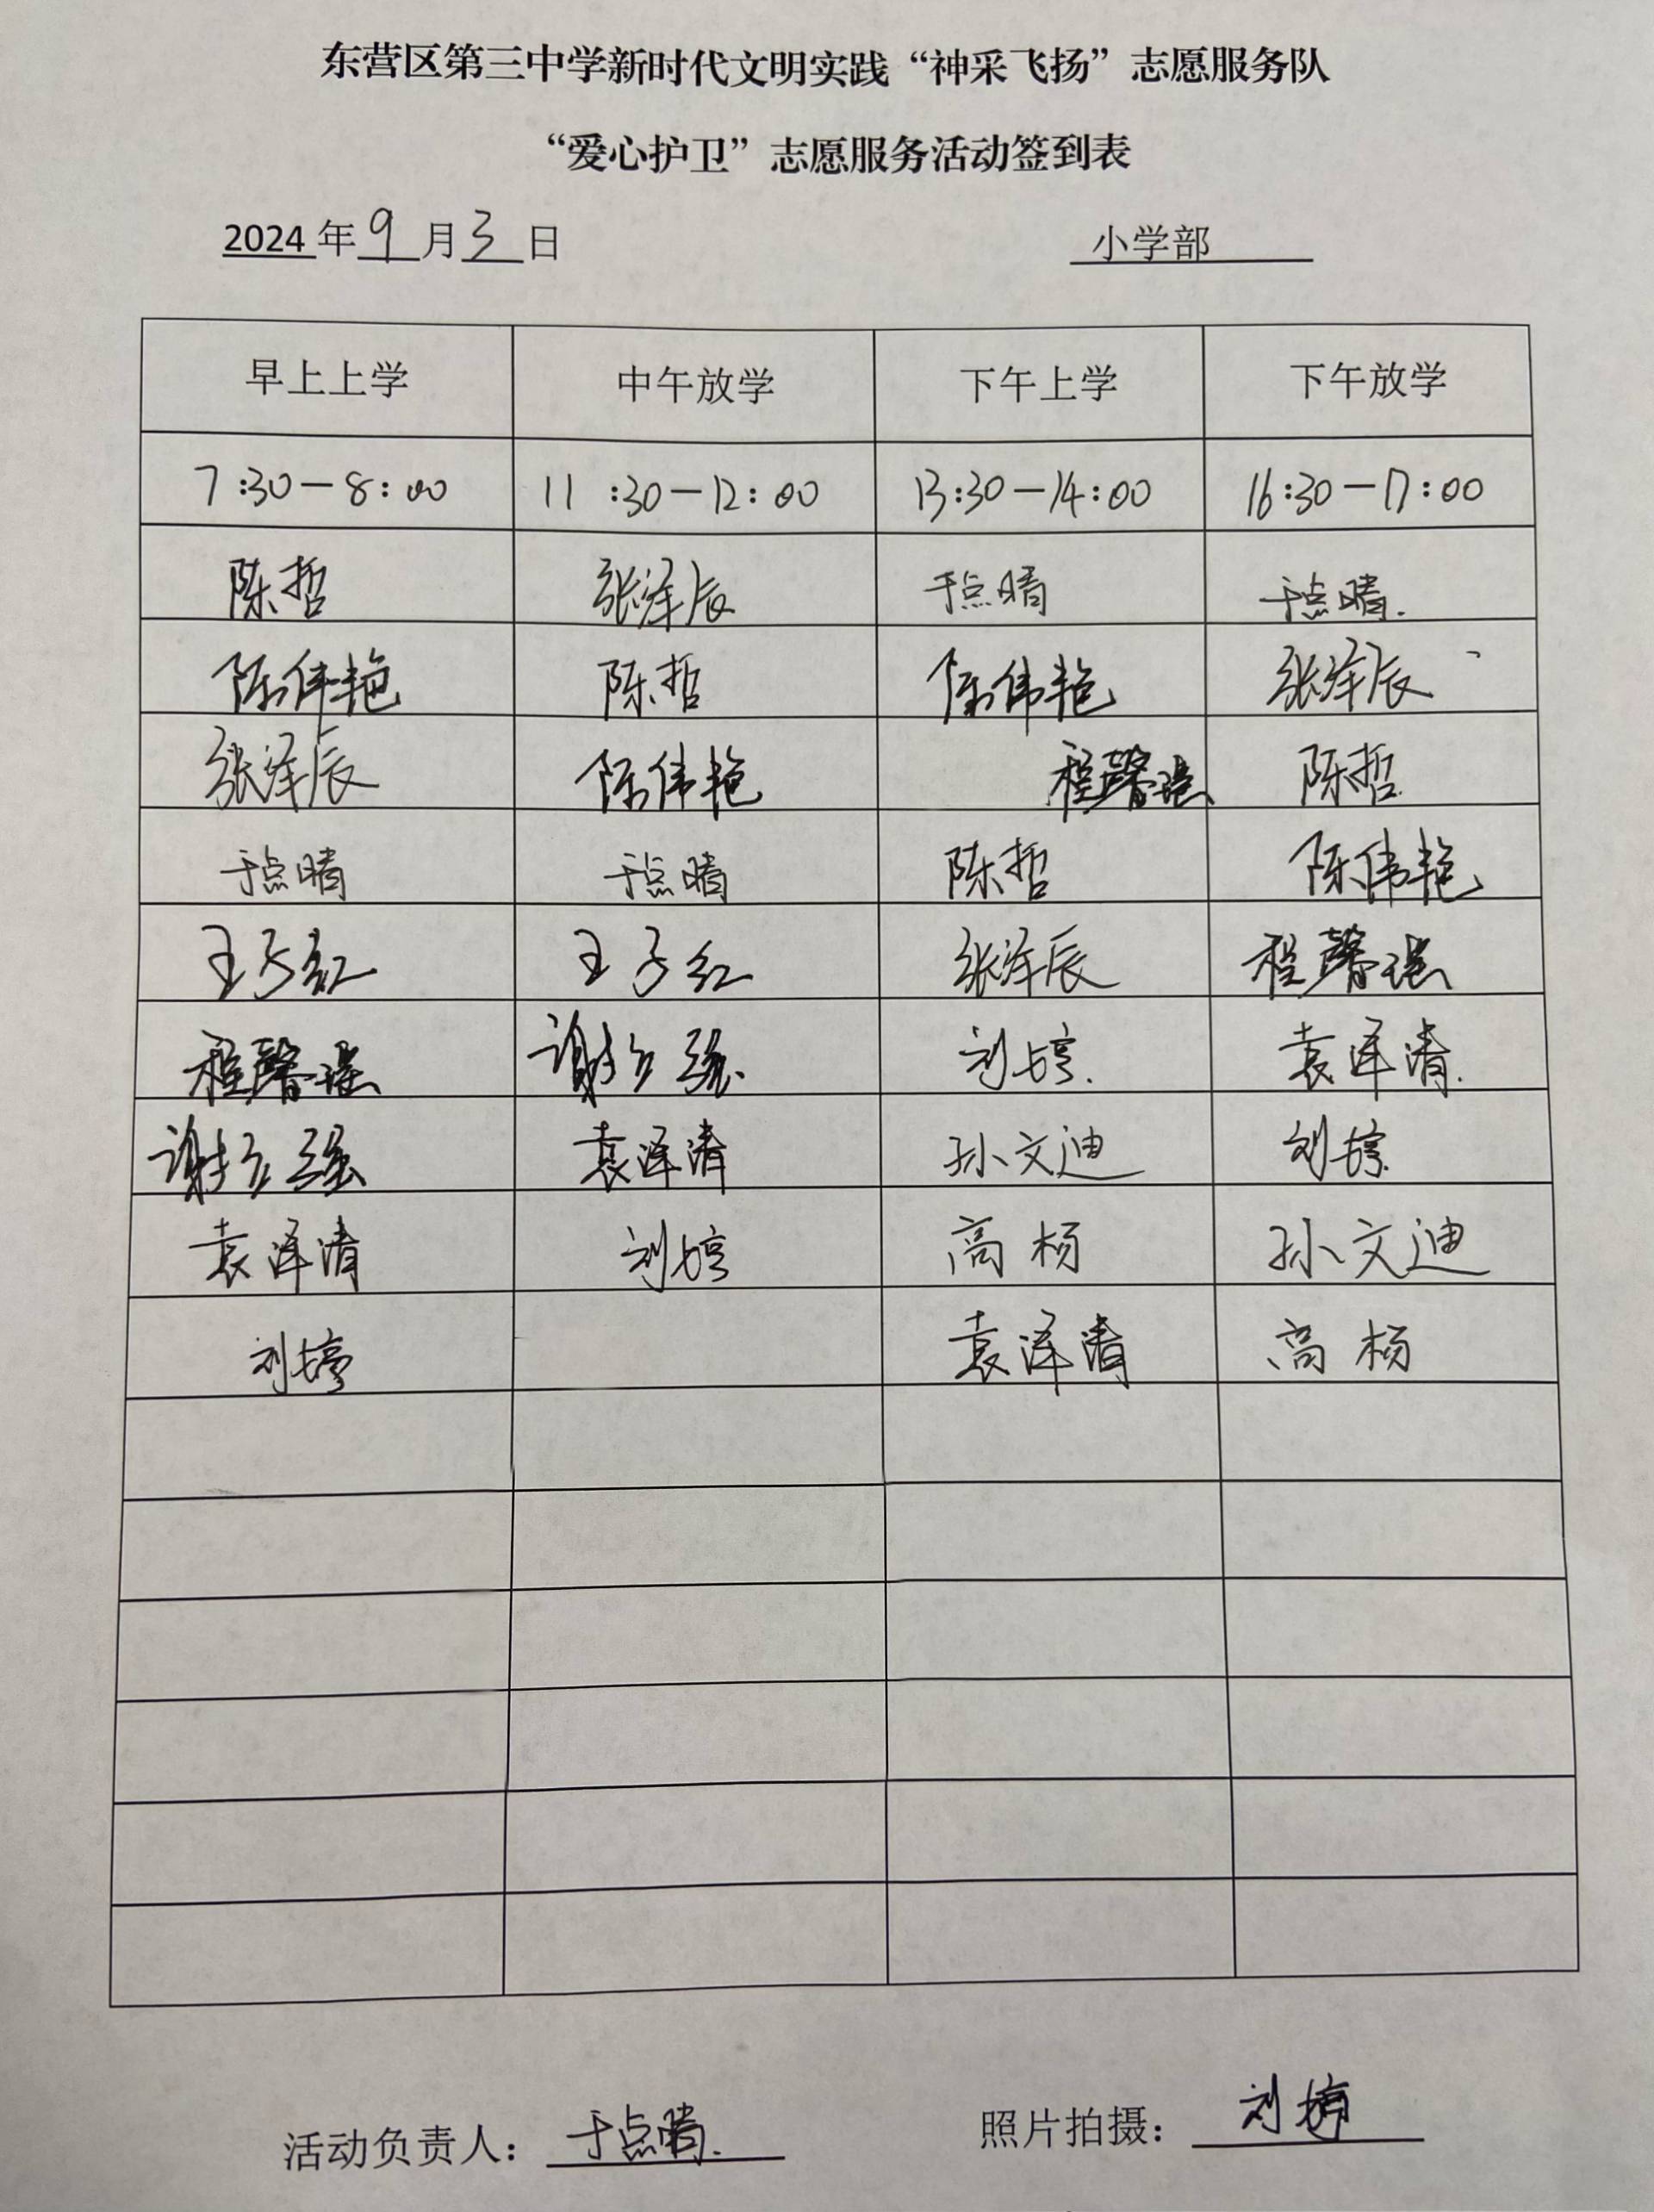 东营区第三中学新时代文明实践“神采飞扬”志愿服务队
“爱心护卫”志愿服务活动签到表
2024年9月3日 小学部
早上上学 中午放学 下午上学 下午放学
7:30-8:00 11:30-12:00 13:30-14:00 16:30-17:00
陈哲 张泽辰 于点晴 于点晴.
陈伟艳 陈哲 陈伟艳 张泽辰
张泽辰 陈伟艳 程馨瑶 陈哲
于点晴 于点晴 陈哲 陈伟艳
王子红 王子红 张泽辰 程馨瑶
程馨瑶 谢立强 刘婷. 袁泽清.
谢立强 袁泽清 孙文迪 刘婷
袁泽清 刘婷 高杨 孙文迪
刘婷 袁泽清 高杨
活动负责人：于点晴. 照片拍摄：刘婷